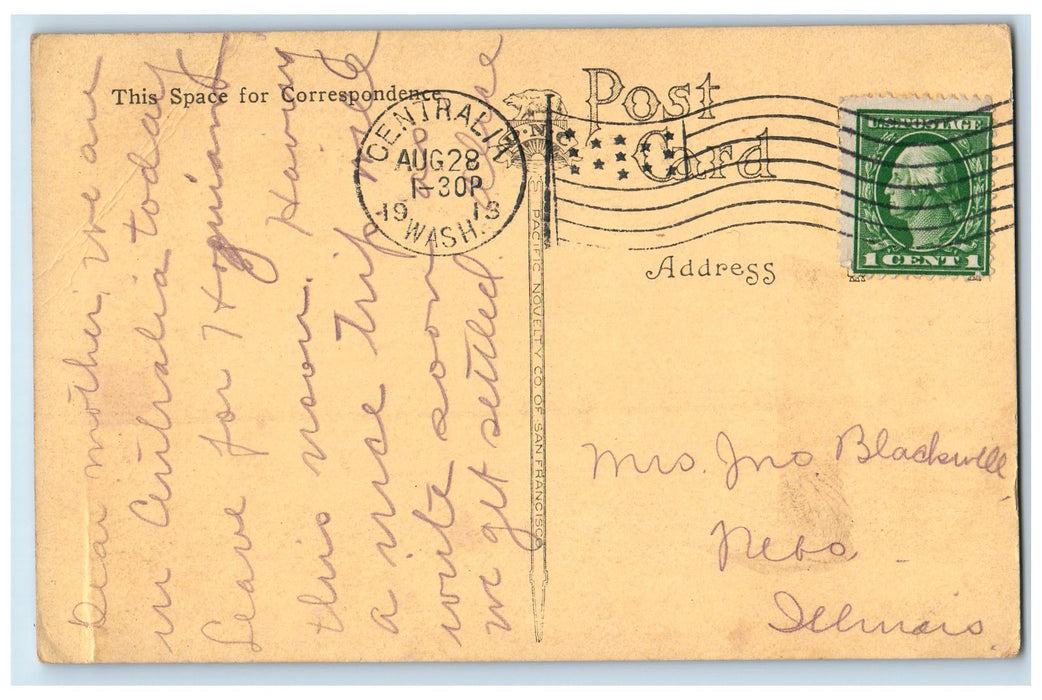 This Space for Correspondence
Dear mother, we are
in Centralia today
Leave for Hoquiam
this noon. Having
a nice trip
write soon as
we get settled.
CENTRALIA
AUG 28
1-30P
1913
WASH.
PACIFIC NOVELTY CO. OF SAN FRANCISCO
Post
Card
Address
U.S. POSTAGE
1 CENT 1
Mrs. Jno Blackwell
Nebo -
Illinois.